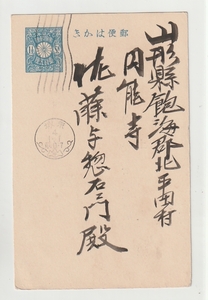 郵便はかき
山形縣飽海郡北平田村
円能寺
佐藤与惣右エ門殿